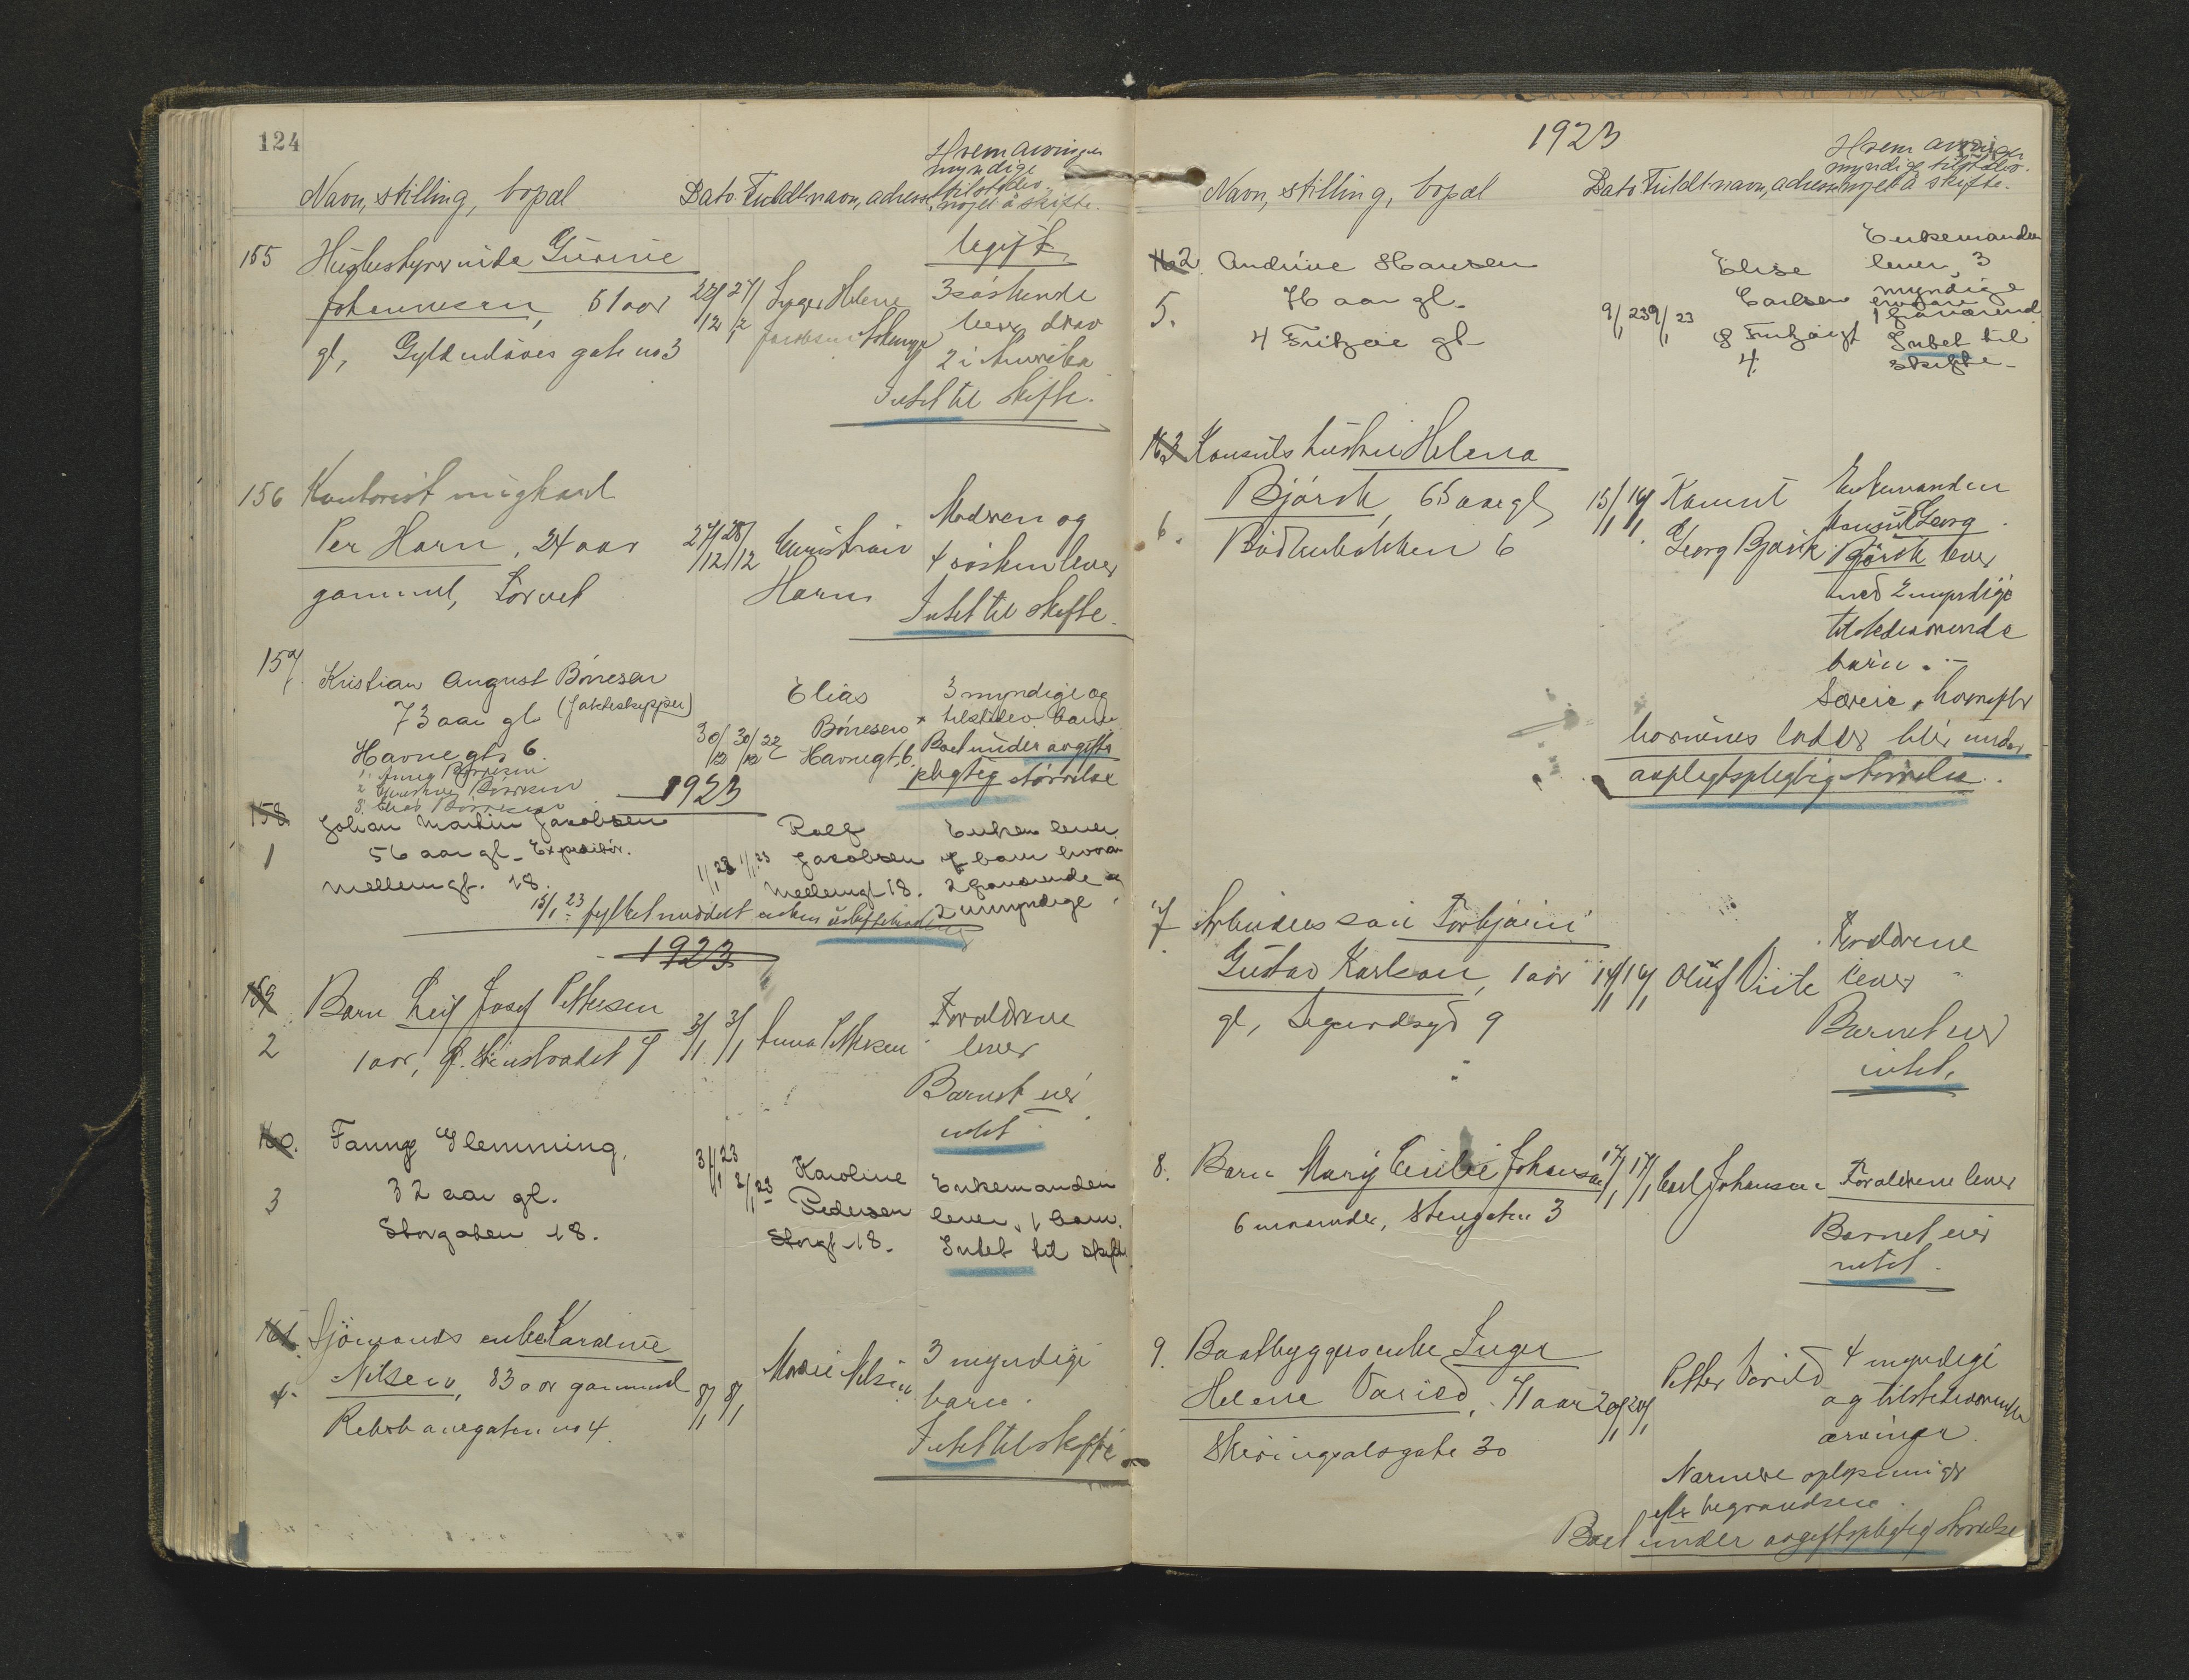 124
Hvem arvinger
myndige
tilstedev.
Navn, stilling, bopæl Dato Fuldt navn, adresse, noget å skifte.
155 Husbestyrerinde Gurine Ugift
Johannesen, 51 aar 22/12 27/12 Inger Helene 3 søskende
gl, Gyldenløves gate no 3 Jacobsen lever, derav
2 i Amerika
Intet til skifte.
156 Kontorist ungkarl
Per Horn, 24 aar 27/12 28/12 Christian Modren og
gammel, Torvet Horn 4 søsken lever
Intet til skifte.
157. Kristian August Børresen
73 aar gl (Jakteskipper) Elias 3 myndige og
Havnegt. 6. 30/12 30/12 22 Børresen tilstedev. barn
Havnegt. 6. Boet under avgifts
pligtig størrelse
1. Børresen
2 Børresen
3. Elias Børresen
1923
158 Johan Martin Jacobsen Rolf Enken lever
1 56 aar gl. Expeditør. 1/1 23 1/1 23 Jacobsen barn hvorav
Mellemgt. 18. Mellemgt 18. 2 fraværende og
2 umyndige
15/1 23 fylket meddelt enken uskiftebevilling
1923
159 Barn Leif Josef Pettersen Forældrene
2 1 aar, 3/1 3/1 Anna Pettersen lever
Barnet eier
intet
160. Fanny Flemming, 3/1 23
3 32 aar gl. 3/1 23 Karoline Enkemanden
Storgaten 18. Pedersen lever, 1 barn.
Storgt 18. Intet til skifte
161. Sjömands enke Karoline
4. Nilsen, 83 aar gammel 8/1 8/1 Marie Nilsen 3 myndige
Rebslanergaten no 4 barn.
Intet til skifte
1923
Hvem arvinger
myndige tilstedev.
Navn, stilling, bopæl Dato Fuldt navn, adresse noget å skifte.
162 Andrine Hansen Elise Enkemanden
5. 76 aar gl. 9/1 23 9/1 23 Carlsen lever, 3
4 Fritzøe gt Fritzøegt myndige
4. 1 fraværend
Intet til
skifte.
163 Konsuls hustru Helena
6. Bjørck, 65 aar gl, 15/1 16/1 Konsul Enkemanden
Bödkerbakken 6 Georg Bjørck Konsul Georg
Bjørck lever
med 2 myndige
tilstedeværende
barn.
Særeie, hvorefter
barnenes lodder blir under
avgiftspligtig størrelse.
7 Arbeiders søn Torbjørn Forældrene
Gustav Karlsen, 1 aar 14/1 16/1 Oluf Viik lever
gl, Sigurdsgt 9 Barnet eier
intet.
8. Barn Mary Cecilie Johansen 17/1 17/1 Carl Johansen Forældrene lever
6 maaneder, Stengaten 3 Barnet eier
intet.
9. Baatbyggers enke Inger
Helene Varild, 71 aar 20/1 20/1 Petter Varild 4 myndige
Skiringsalsgate 30 og tilstedeværende
arvinger.
Nærmere oplysninger
efter begravelsen.
Boet under avgiftspligtig størrelse